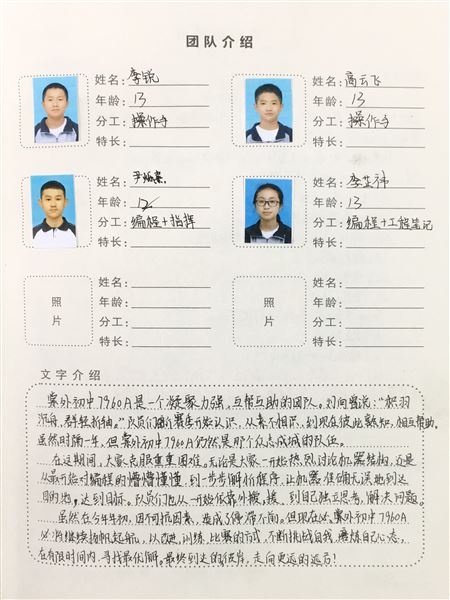 团队介绍
姓名：李锐
年龄：13
分工：操作手
特长：
姓名：高云飞
年龄：13
分工：操作手
特长：
姓名：尹
年龄：12
分工：编程+指挥
特长：
姓名：李芷祎
年龄：13
分工：编程+工程笔记
特长：
照片
姓名：
年龄：
分工：
特长：
照片
姓名：
年龄：
分工：
特长：
文字介绍
案外初中7960A是一个凝聚力强，互帮互助的团队。刘向曾说：“积羽
沉舟，群轻折轴。”队员们从赛季开始认识，从素不相识，到现在彼此熟知，相互帮助。
虽然时隔一年，但案外初中7960A仍然是那个众志成城的队伍。
在这期间，大家克服重重困难。无论是大家一开始热烈讨论机器结构，还是
从最开始对编程的懵懵懂懂到一步步解析程序，让机器准确无误地到达
目的地，达到目标。队员们也从一开始依靠外援，到自己独立思考，解决问题。
虽然在今年年初，因不可抗因素，造成了停滞不前。但现在，案外初中7960A
必将继续扬帆起航，以改进、训练、比赛的方式，不断挑战自我，磨炼自己心态，
在有限时间内，寻找最优解。最终到达的彼岸，走向更远的远方！